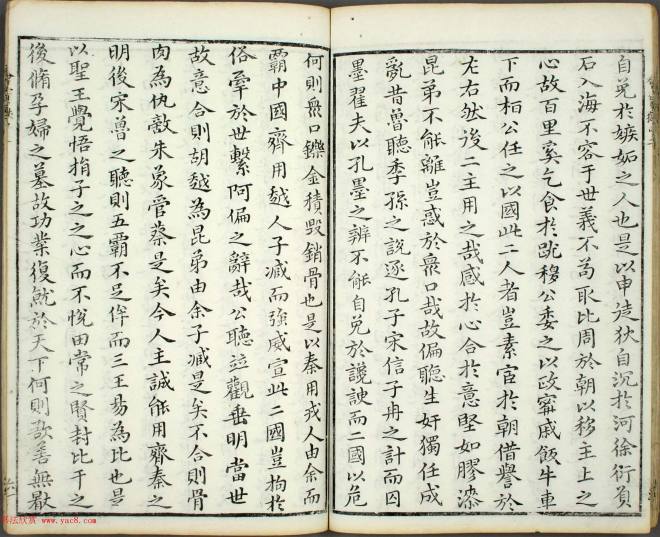 自免於嫉妬之人也是以申徒狄自沉於河徐衍負
石入海不容于世義不苟取比周於朝以移主上之
心故百里奚乞食於路穆公委之以政甯戚飯牛車
下而桓公任之以國此二人者豈素宦於朝借譽於
左右然後二主用之哉感於心合於意堅如膠漆
昆弟不能離豈惑於衆口哉故偏聽生奸獨任成
亂昔魯聽季孫之說逐孔子宋信子冉之計而囚
墨翟夫以孔墨之辨不能自免於讒諛而二國以危
何則衆口鑠金積毀銷骨也是以秦用戎人由余而
霸中國齊用越人子臧而強威宣此二國豈拘於
俗牽於世繫阿偏之辭哉公聽並觀垂明當世
故意合則胡越為昆弟由余子臧是矣不合則骨
肉為仇敵朱象管蔡是矣今人主誠能用齊秦之
明後宋魯之聽則五霸不足侔而三王易為比也是
以聖王覺悟捐子之之心而不悅田常之賢封比干之
後脩孕婦之墓故功業復就於天下何則欲善無厭
书法欣赏 www.yac8.com